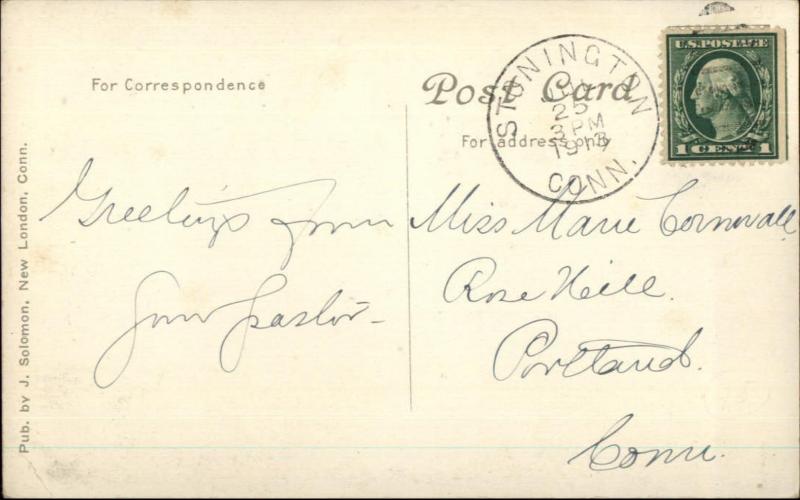 For Correspondence
Post Card
For address only
STONINGTON
25
3 PM
CONN.
U.S. POSTAGE
1 CENT 1
Greetings from
your Pastor-
Miss Marie Cornwall
Rose Hill.
Portland.
Conn.
Pub. by J. Solomon, New London, Conn.